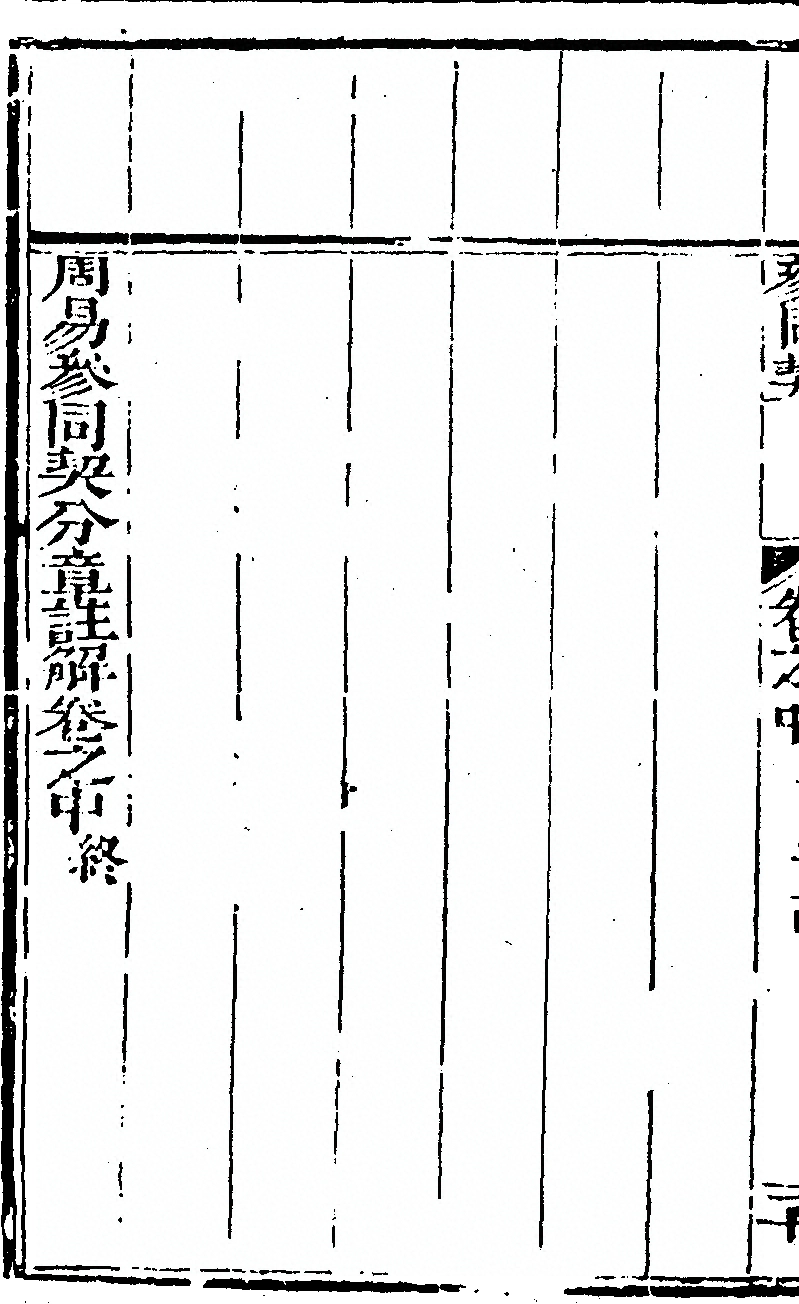 參同契 卷之中
周易參同契分章註解卷之中終